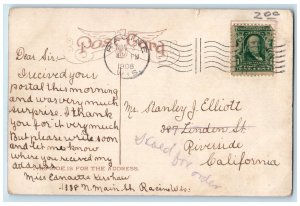 200
Post Card
RACINE
PM
1908
WIS.
Dear Sir:
I recived your
postal this morning
and was very much
surprise. I thank
you for it very much.
But please write soon
and let me know
where you recived my
address.
THIS SIDE IS FOR THE ADDRESS.
Miss Kershaw
1338 N. Main St. Racine Wis.
Mr. Stanley J. Elliott
387 Linden St.
Riverside
California
for order